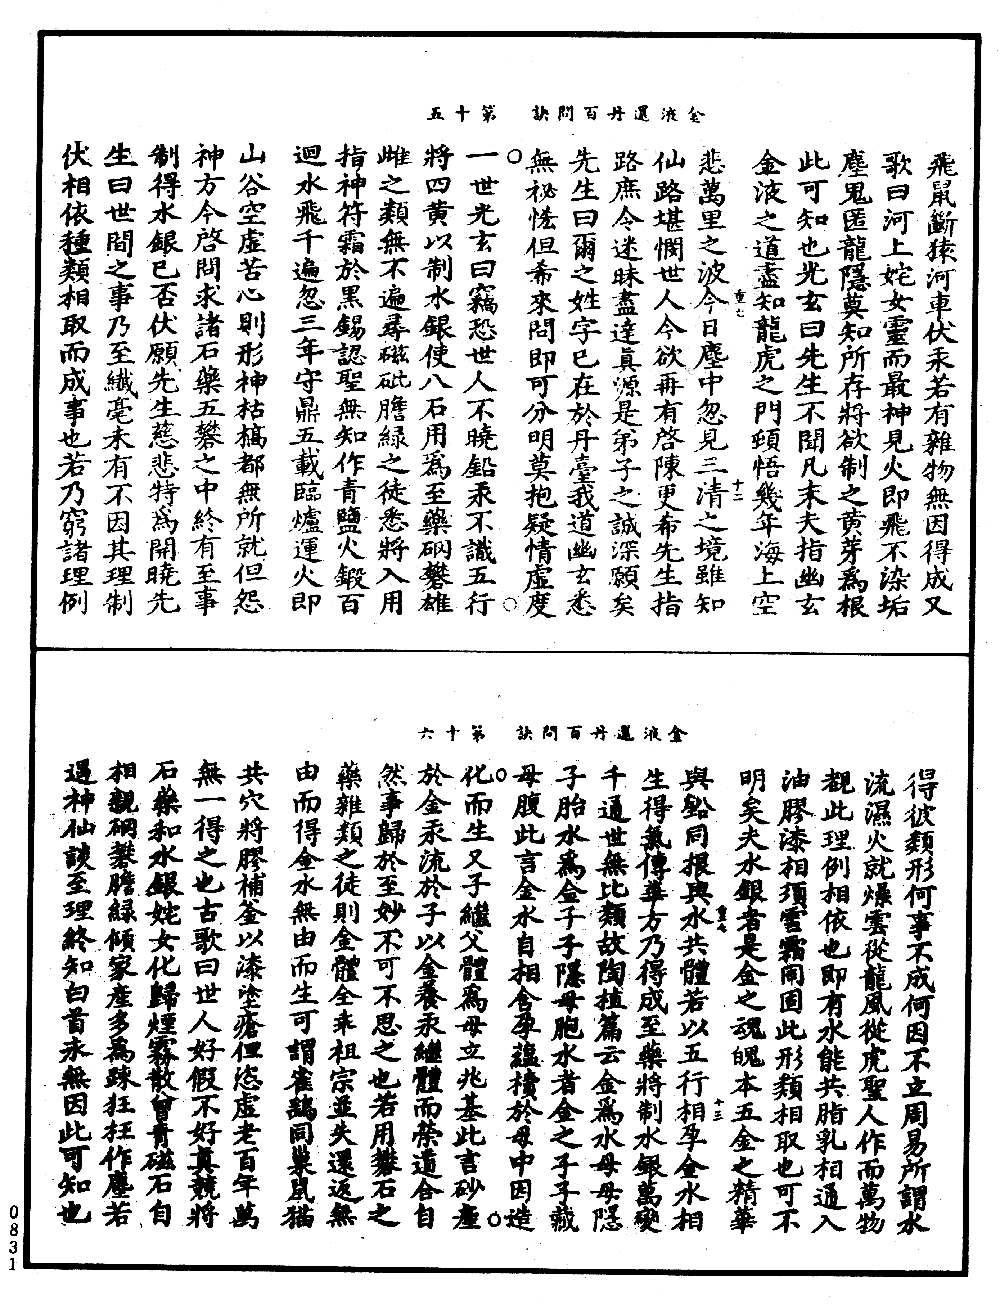 金液還丹百問訣　第十五
飛鼠斷猿河車伏汞若有雜物無因得成又
歌曰河上姹女靈而最神見火即飛不染垢
塵鬼匿龍隱莫知所存將欲制之黃芽爲根
此可知也光玄曰先生不聞凡末夫指幽玄
金液之道盡知龍虎之門頸悟幾年海上空
悲萬里之波今日塵中忽見三清之境雖知
重七
十二
仙路堪憫世人今欲再有啓陳更希先生指
路庶令迷昧盡達真源是弟子之誠深願矣
先生曰爾之姓字已在於丹臺我道幽玄悉
無祕恡但希來問即可分明莫抱疑情虛度
一世光玄曰竊恐世人不曉鉛汞不識五行
將四黃以制水銀使八石用爲至藥硇礬雄
雌之類無不遍尋磁砒膽緑之徒悉將入用
指神符霜於黑錫認聖無知作青鹽火鍛百
迴水飛千遍忽三年守鼎五載臨爐運火即
山谷空虛苦心則形神枯槁都無所就但怨
神方今啓問求諸石藥五礬之中終有至事
制得水銀已否伏願先生慈悲特爲開曉先
生曰世間之事乃至纖毫未有不因其理制
伏相依種類相取而成事也若乃窮諸理例
金液還丹百問訣　第十六
得彼類形何事不成何因不立周易所謂水
流濕火就燥雲從龍風從虎聖人作而萬物
覩此理例相依也即有水能共脂乳相通入
油膠漆相須雪霜同固此形類相取也可不
明矣夫水銀者是金之魂魄本五金之精華
與鈆同根與水共體若以五行相孕金水相
重七
十三
生得氣傳華方乃得成至藥將制水銀萬變
千通世無比類故陶植篇云金爲水母母隱
子胎水爲金子子隱母胞水者金之子子藏
母腹此言金水自相含孕蘊櫝於母中因造
化而生又子繼父體爲母立兆基此言砂産
於金汞流於子以金養汞繼體而榮道合自
然事歸於至妙不可不思之也若用礬石之
藥雜類之徒則金體全乖祖宗並失還返無
由而得金水無由而生可謂雀鷂同巢鼠猫
共穴將膠補釜以漆塗瘡但恣虛老百年萬
無一得之也古歌曰世人好假不好真競將
石藥和水銀姹女化歸煙霧散曾青磁石自
相親硇礬膽緑傾家産多爲踈狂枉作塵若
遇神仙談至理終知白首永無因此可知也
0831